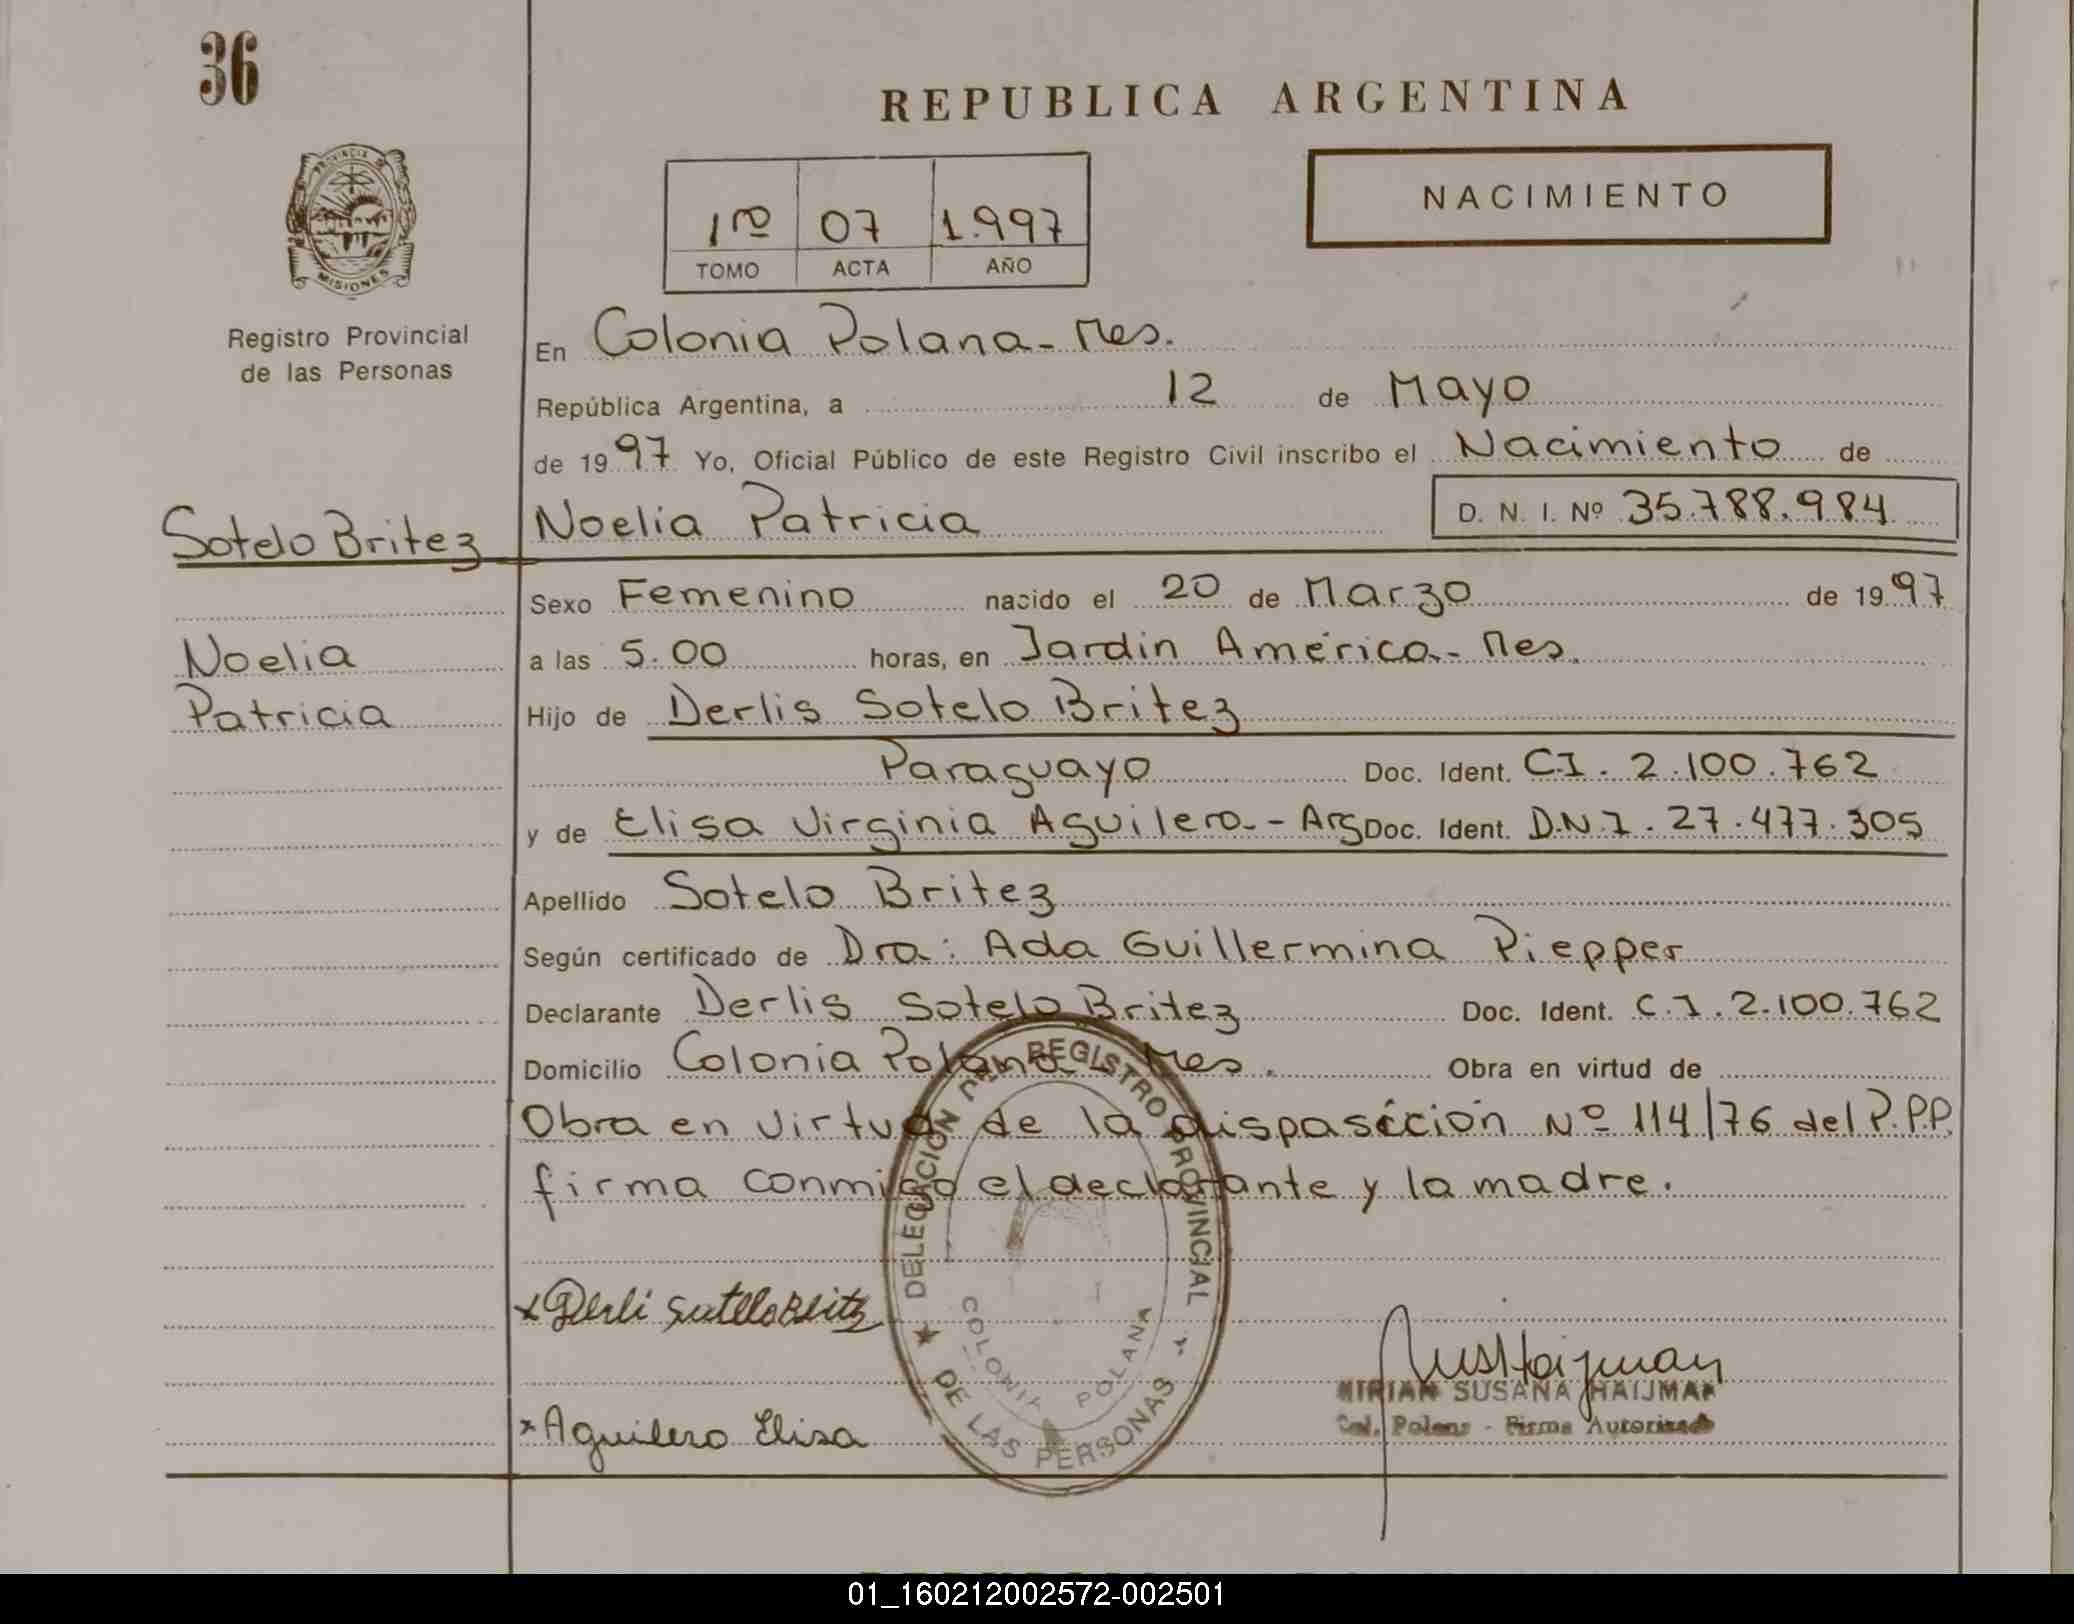 36
REPUBLICA ARGENTINA
NACIMIENTO
1ro 07 1.997
TOMO ACTA AÑO
PROVINCIA DE
MISIONES
Registro Provincial
de las Personas
En Colonia Polana - Mes.
República Argentina, a 12 de Mayo
de 1997 Yo, Oficial Público de este Registro Civil inscribo el Nacimiento de
Sotelo Britez Noelia Patricia D. N. I. Nº 35.788.984
Sexo Femenino nacido el 20 de Marzo de 1997
Noelia a las 5.00 horas, en Jardin América - Mes.
Patricia Hijo de Derlis Sotelo Britez
Paraguayo Doc. Ident. C.I. 2.100.762
y de Elisa Virginia Aguilera - Arg Doc. Ident. D.N.I. 27.477.305
Apellido Sotelo Britez
Según certificado de Dra: Ada Guillermina Piepper
Declarante Derlis Sotelo Britez Doc. Ident. C.I. 2.100.762
Domicilio Colonia Polana - Mes. Obra en virtud de
Obra en virtud de la dispasición Nº 114/76 del P.P.P.
firma conmigo el declarante y la madre.
DELEGACION DEL REGISTRO PROVINCIAL
DE LAS PERSONAS
COLONIA POLANA
x Derli Sutelo Britz
x Aguilero Elisa
MIRIAN SUSANA HAIJMAN
Col. Polana - Firma Autorizada
01_160212002572-002501